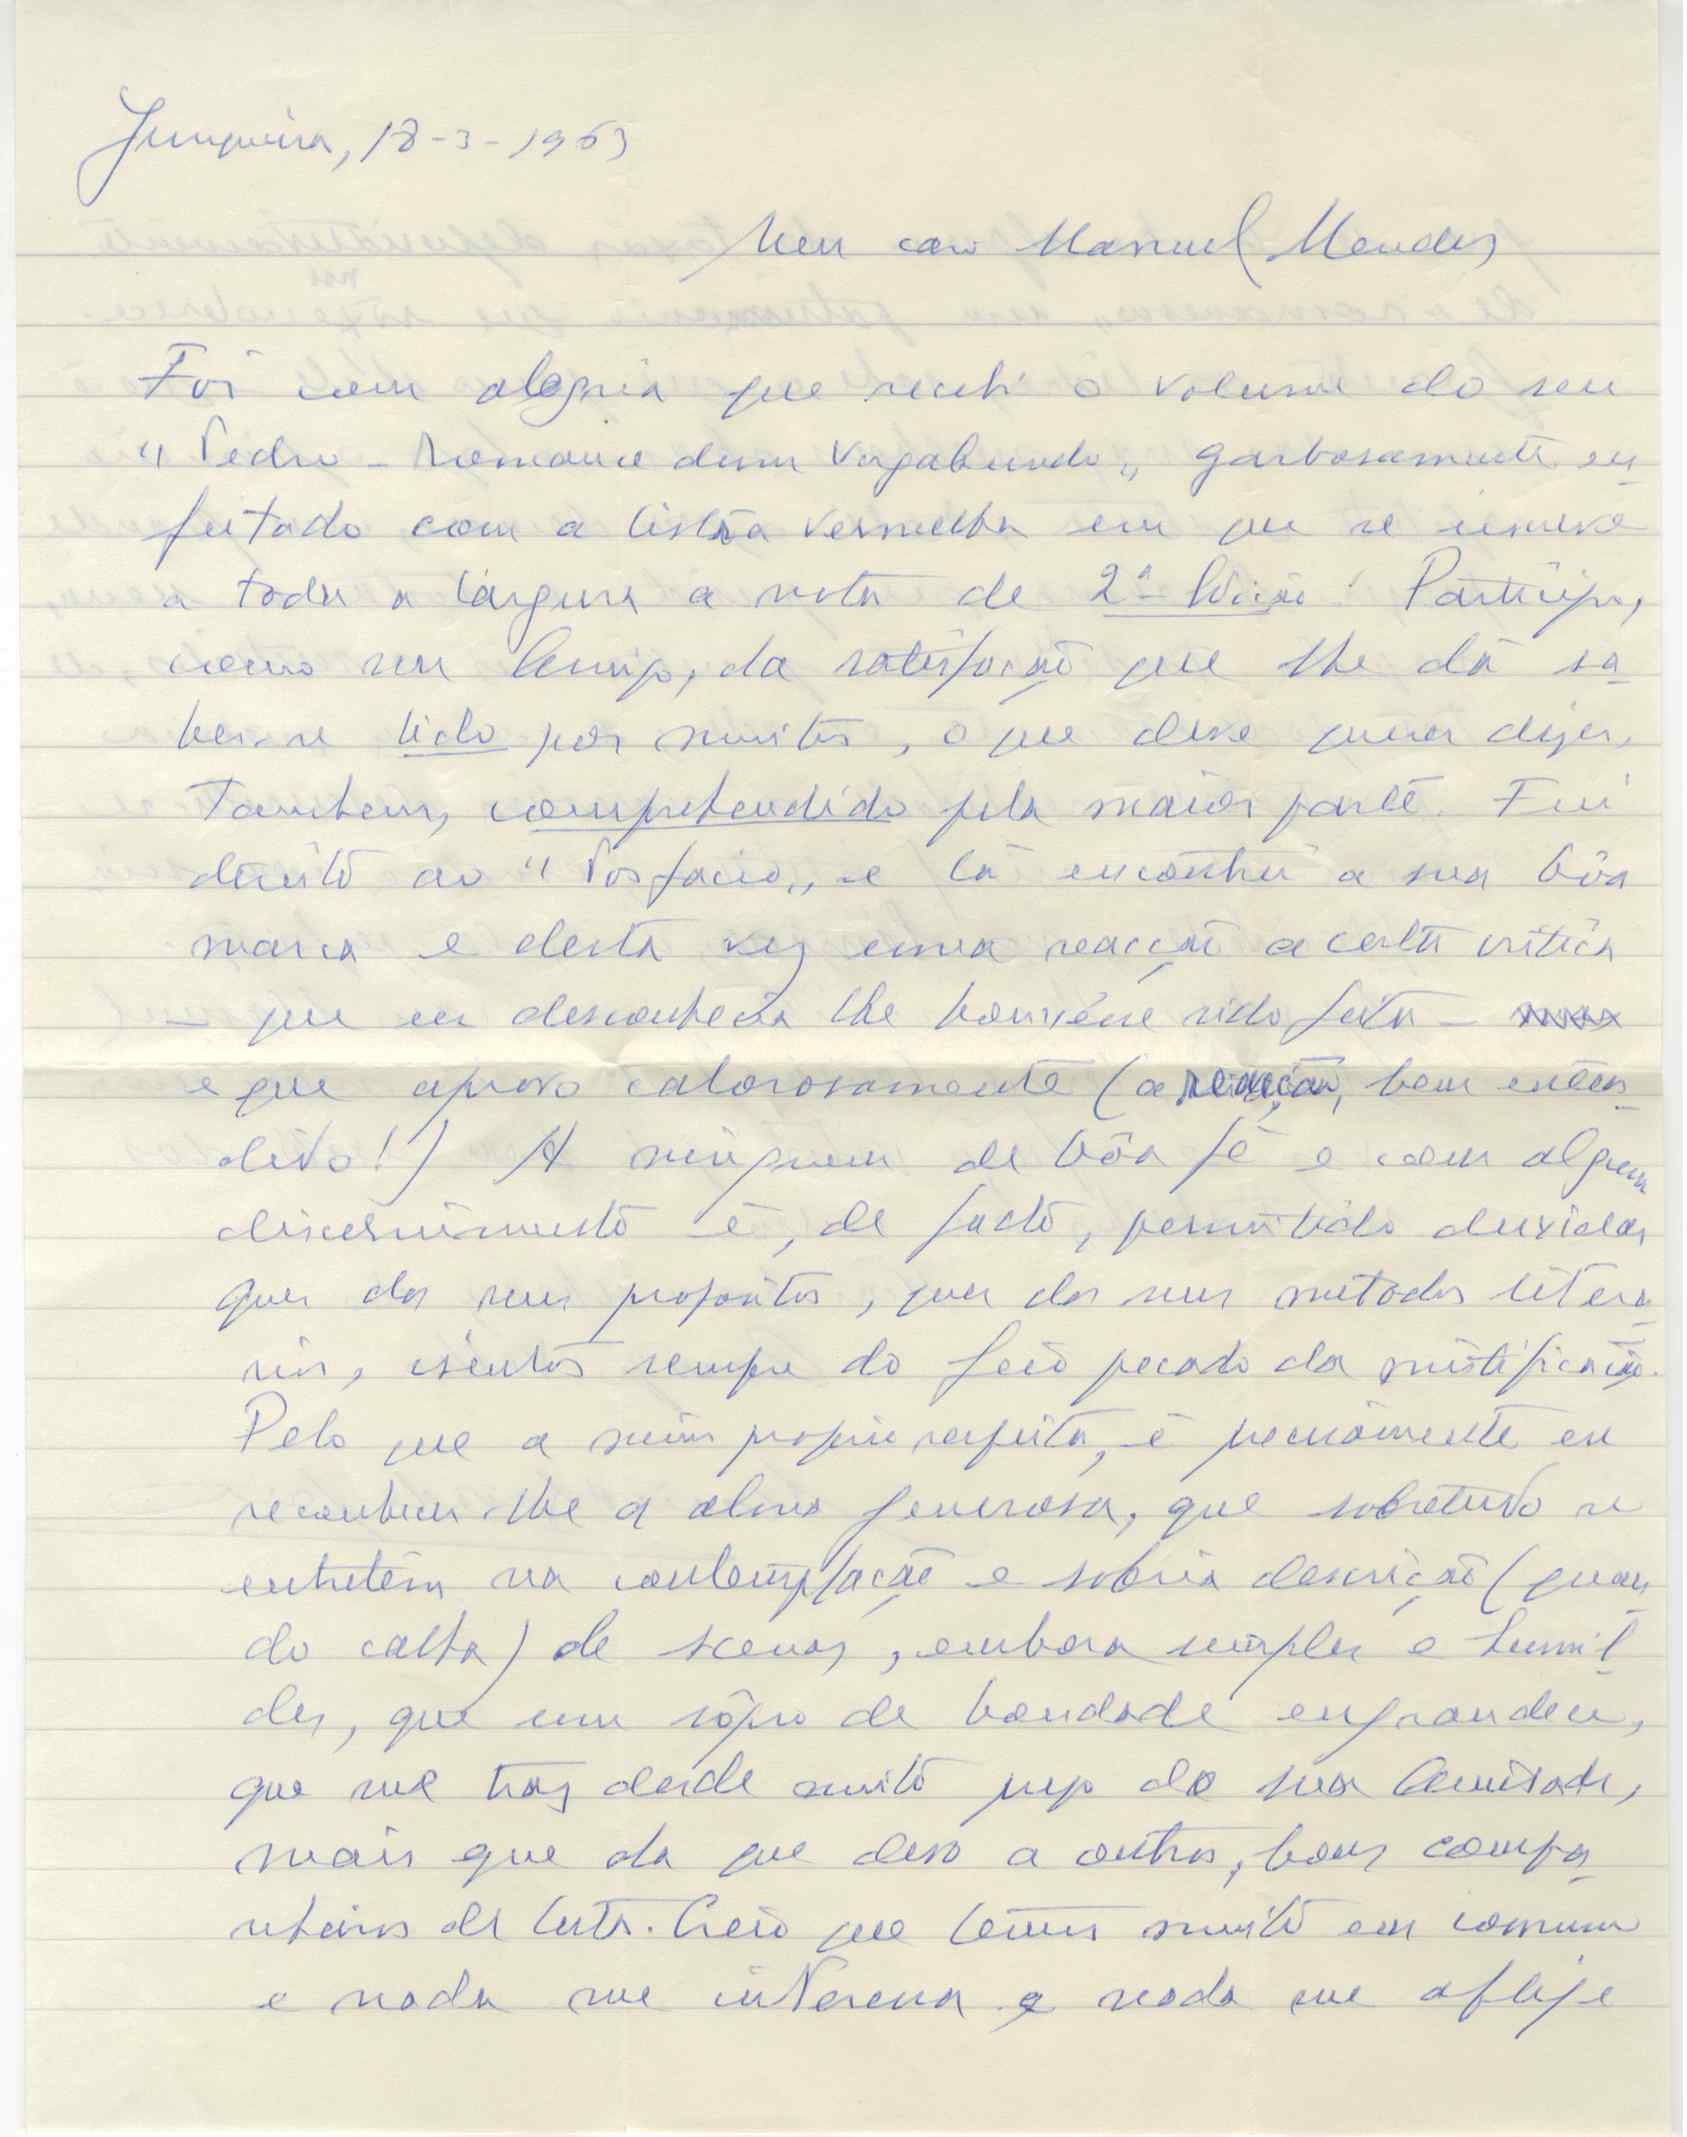 Junqueira, 18-3-1963
Meu caro Manuel Mendes
Foi com alegria que recebi o volume do seu
"Pedro - Romance dum Vagabundo", garbosamente en-
feitado com a listra vermelha em que se inscreve
a toda a largura a nota de 2ª Edição! Participo,
como seu Amigo, da satisfação que lhe dá sa-
ber-se lido por muitos, o que deve querer dizer,
tambem, comprehendido pela maior parte. Fui
direito ao "Posfacio", e lá encontrei a sua bôa
marca e desta vez uma reacção a certa critica
- que eu desconhecia lhe houvésse sido feita -
e que aprovo calorosamente (a reacção, bem enten-
dido!) A ninguem de bôa fé e com algum
discernimento é, de facto, permitido duvidar
quer dos seus propositos, quer dos seus metodos litera-
rios, isentos sempre do feio pecado da mistificação.
Pelo que a mim proprio respeita, é precisamente eu
reconhecer-lhe a alma generosa, que sobretudo se
entretém na contemplação e sobria descrição (quan-
do calha) de scenas, embora simples e humil-
des, que um sôpro de bondade engrandece,
que me traz desde muito preso da sua Amisade,
mais que da que devo a outros, bons compa-
nheiros de luta. Creio que temos muito em comum
e nada me interessa e nada me aflije